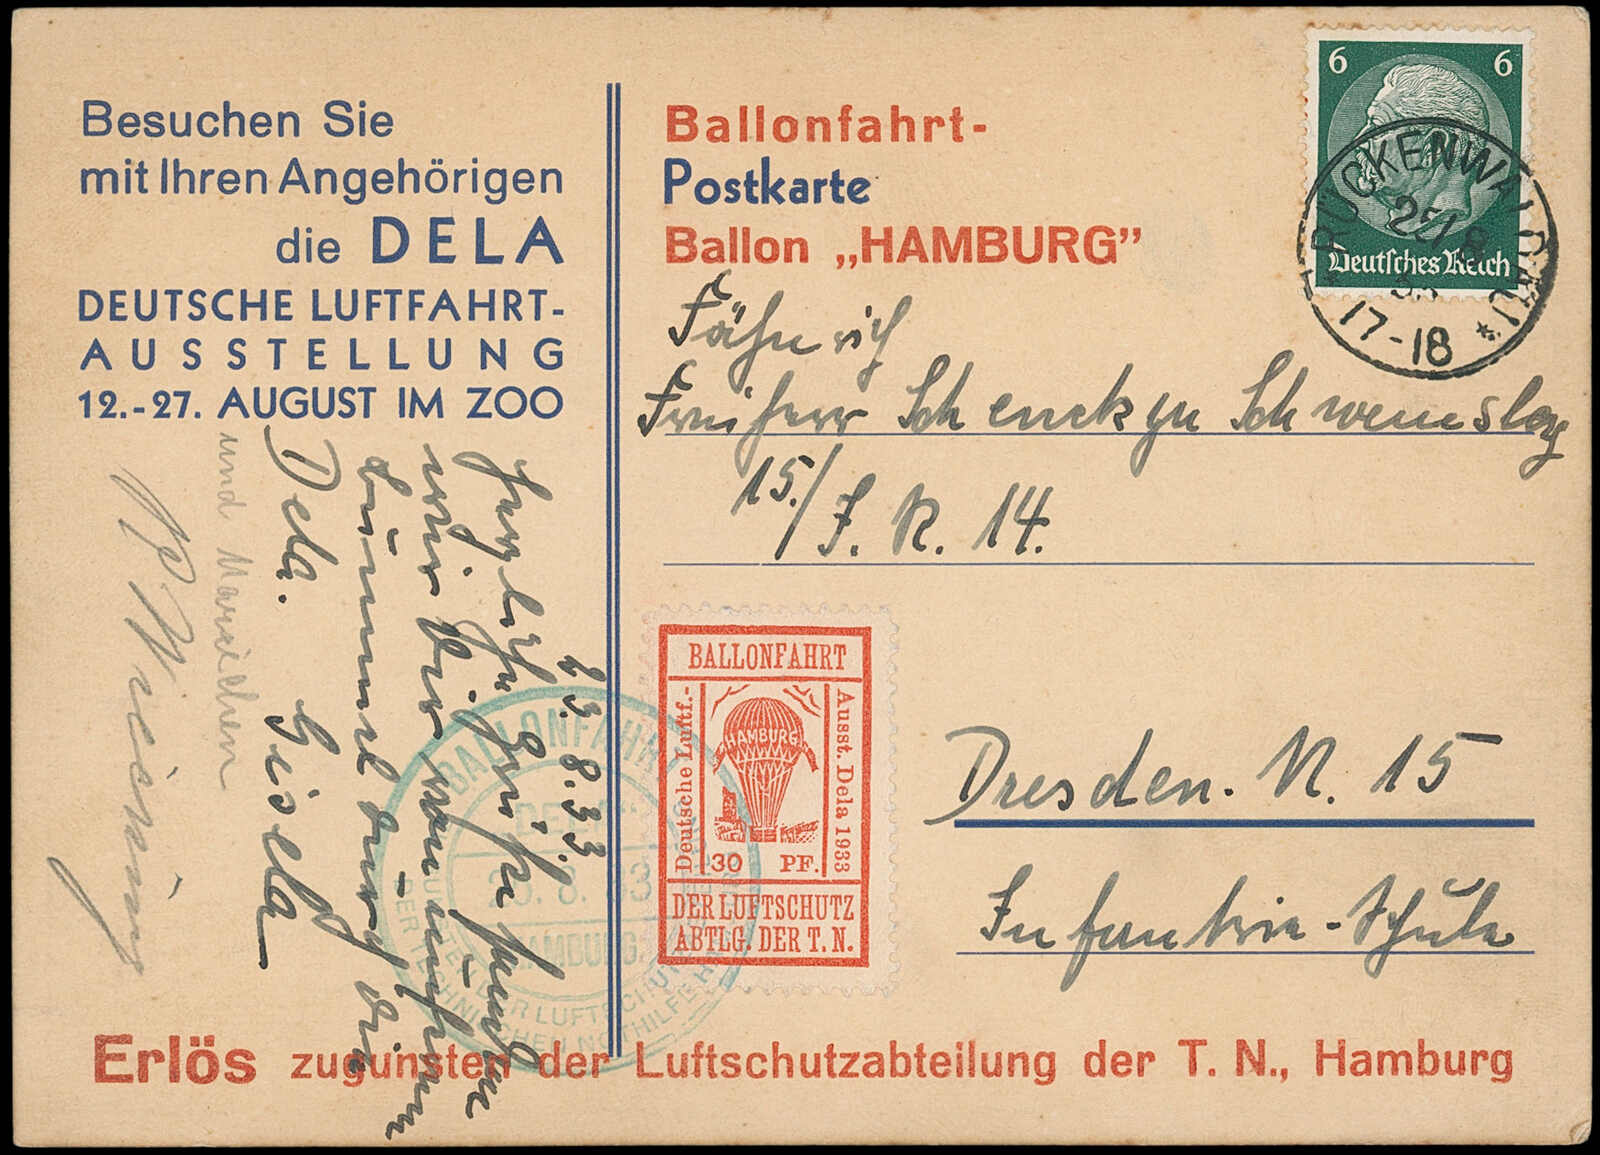 Besuchen Sie
mit Ihren Angehörigen
die DELA
DEUTSCHE LUFTFAHRT-
AUSSTELLUNG
12.-27. AUGUST IM ZOO
23.8.33.
Herzliche Grüße senden
wir Dir von unserem
Bummel durch die
Dela. Gisela
und Mariechen
Ballonfahrt-
Postkarte
Ballon „HAMBURG”
6 6
Deutsches Reich
BRÜCKENWALD
25/8
33
17-18 *
Fähnrich
Freiherr Schenck zu Schweinsberg
15./J. R. 14.
Dresden. N. 15
Infanterie-Schule
BALLONFAHRT
Deutsche Luftf.-
Ausst. Dela 1933
HAMBURG
30 PF.
DER LUFTSCHUTZ
ABTLG. DER T. N.
BALLONFAHRT
"DELA"
23.8.33
HAMBURG
DER LUFTSCHUTZ
DER TECHNISCHEN NOTHILFE
Erlös zugunsten der Luftschutzabteilung der T. N., Hamburg